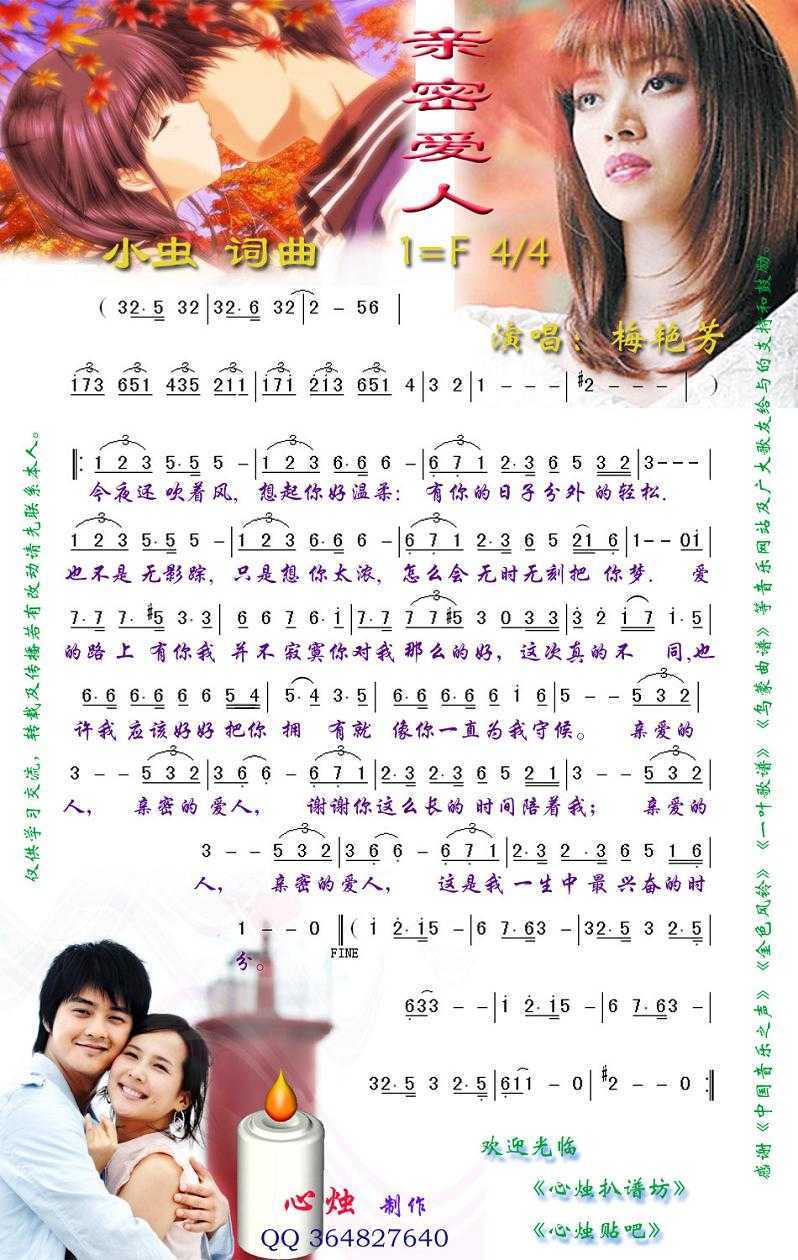 亲密爱人
小虫 词曲 1=F 4/4
演唱：梅艳芳
( 32·5 32|32·6 32|2 - 56|
173 651 435 211|171 213 651 4|3 2|1 - - -|#2 - - -| )
‖: 1 2 3 5·5 5 -|1 2 3 6·6 6 -|6 7 1 2·3 6 5 3 2|3---|
今夜还 吹着风, 想起你好温柔: 有你的日子分外 的轻松.
1 2 3 5·5 5 -|1 2 3 6·6 6 -|6 7 1 2·3 6 5 21 6|1-- 01|
也不是 无影踪, 只是想 你太浓, 怎么会 无时无刻把 你梦. 爱
7·7 7·#5 3·3| 6 6 7 6·1|7·7 7 7#5 3 0 3 3|3 2 1 7 1·5|
的路上 有你我 并不 寂寞你对我 那么的好, 这次真的不 同,也
6·6 6·6 6 6 5 4|5·4 3·5|6·6 6·6 6 1 6|5 - - 5 3 2|
许我 应该好好 把你 拥 有就 像你一直为我守候。 亲爱的
3 - - 5 3 2|3 6 6 - 6 7 1|2·3 2·3 6 5 2 1|3 - - 5 3 2|
人， 亲密的 爱人， 谢谢你这么长的 时间陪着我； 亲爱的
3 - - 5 3 2|3 6 6 - 6 7 1|2·3 2·3 6 5 1 6|
人， 亲密的爱人， 这是我 一生中 最 兴奋的时
1 - - 0 ‖( 1 2·15 -|6 7·63 -|32·5 3 2·5|
分。
FINE
633 - -|1 2·15 -|6 7·63 -|
32·5 3 2·5|611 - 0|#2 - - 0 :‖
欢迎光临
《心烛扒谱坊》
《心烛贴吧》
心烛 制作
QQ 364827640
仅供学习交流，转载及传播若有改动请先联系本人。
感谢《中国音乐之声》《金色风铃》《一叶歌谱》《乌蒙曲谱》等音乐网站及广大歌友给与的支持和鼓励。